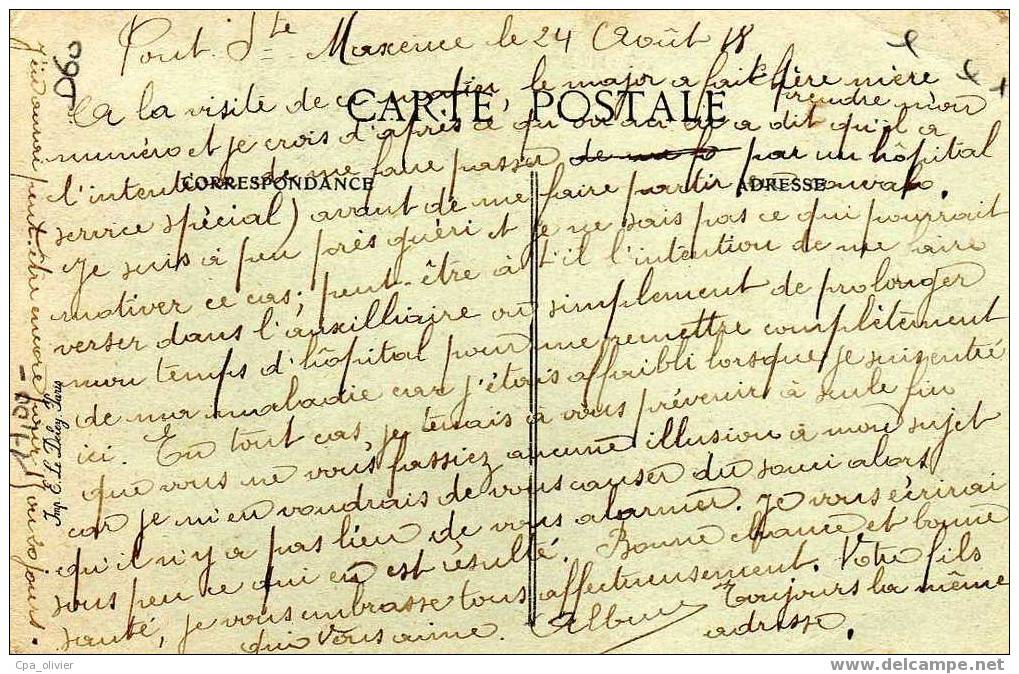 Pont Ste Maxence le 24 Août 18
A la visite de ce matin, le major a fait
CARTE POSTALE
prendre mon
numéro et je crois d'après ce qu' on a dit qu'il a
l'intention de me faire passer par un hôpital
CORRESPONDANCE
ADRESSE
service spécial) avant de me faire partir en convalo.
Je suis à peu près guéri et je ne sais pas ce qui pourrait
motiver ce cas; peut-être à t'il l'intention de me faire
verser dans l'auxilliaire ou simplement de prolonger
mon temps d'hôpital pour me remettre complètement
de ma maladie car j'étais affaibli lorsque je suis entré
ici. En tout cas, je tenais à vous prévenir à seule fin
que vous ne vous fassiez aucune illusion à mon sujet
car je m'en voudrais de vous causer du souci alors
qu'il n'y a pas lieu de vous alarmer. Je vous écrirai
sous peu ce qui en est résulté. Bonne chance et bonne
santé, je vous embrasse tous affectueusement. Votre fils
qui vous aime. Toujours la même
adresse.
J'en aurai peut-être encore pour 15 ou 20 jours.
D60
Cpa_olivier
www.delcampe.net